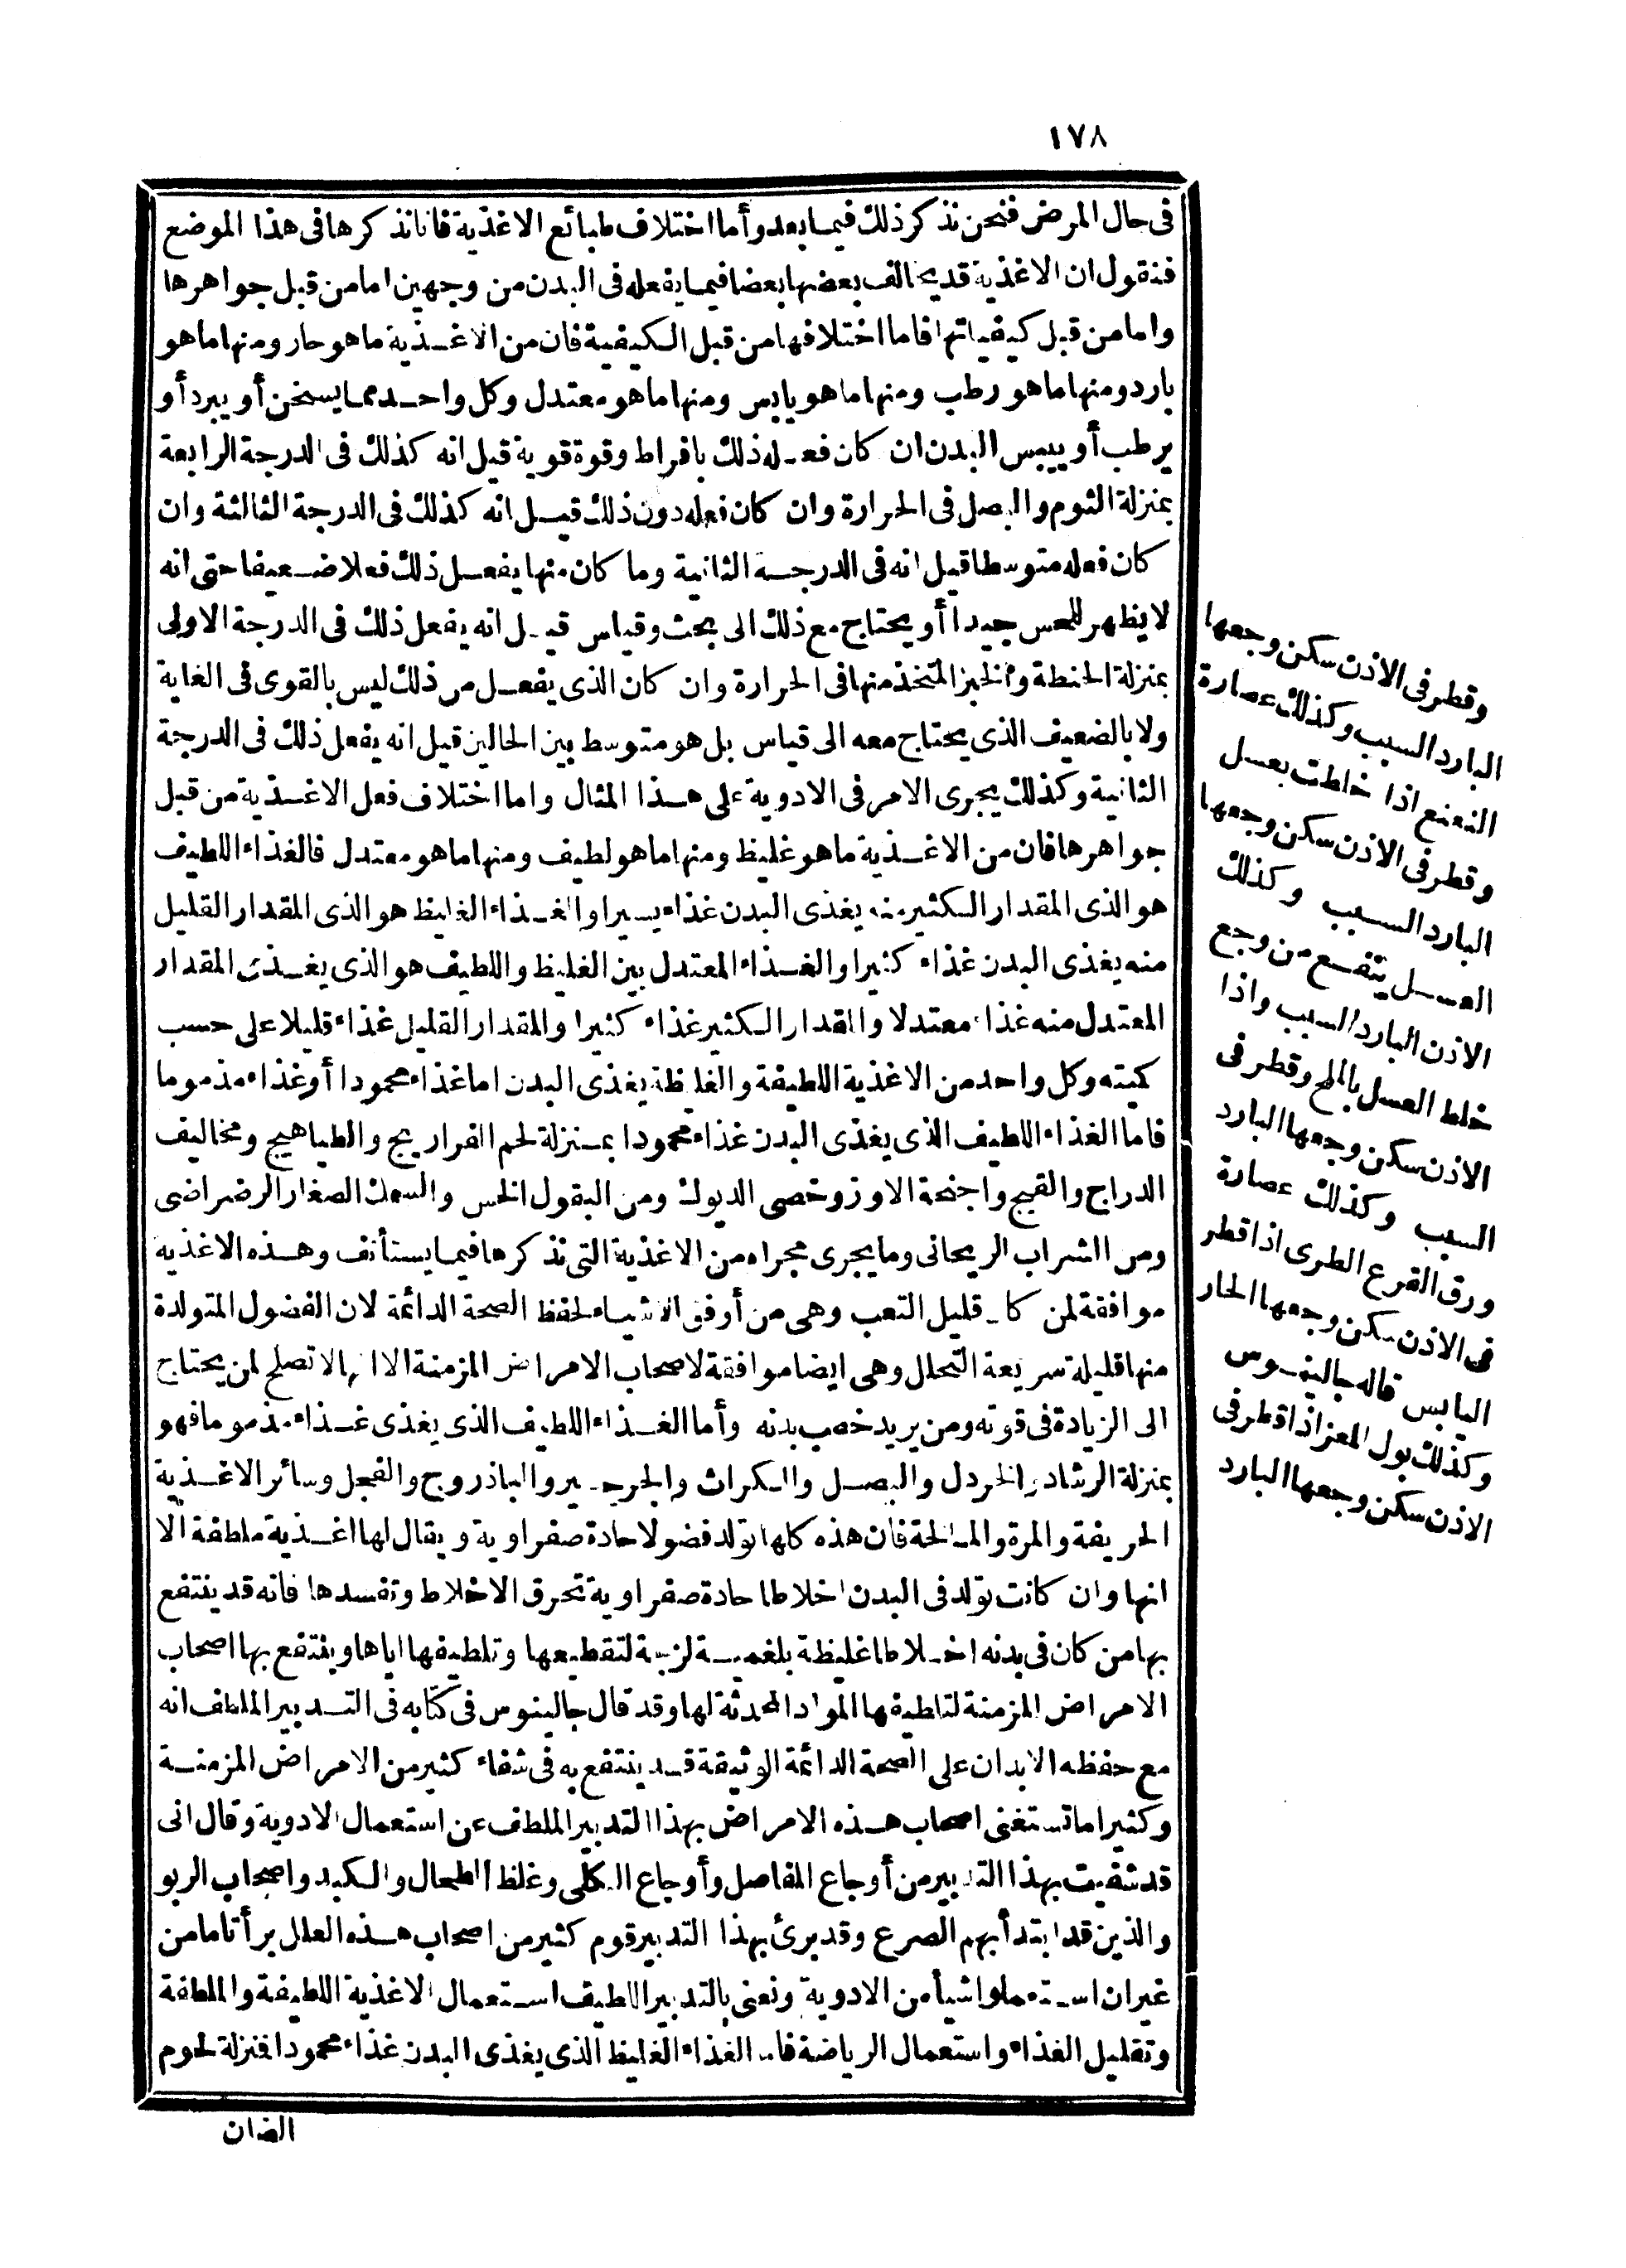 ١٧٨
فى حال المرض فنحن نذكر ذلك فيما بعد وأما اختلاف طبائع الاغذية فانا نذكرها فى هذا الموضع
فنقول ان الاغذية قد يخالف بعضها بعضا فيما يفعله فى البدن من وجهين اما من قبل جواهرها
واما من قبل كيفياتها فاما اختلافها من قبل الكيفية فان من الاغذية ما هو حار ومنها ما هو
بارد ومنها ما هو رطب ومنها ما هو يابس ومنها ما هو معتدل وكل واحد مما يسخن أو يبرد أو
يرطب أو ييبس البدن ان كان فعله ذلك بافراط وقوة قوية قيل انه كذلك فى الدرجة الرابعة
بمنزلة الثوم والبصل فى الحرارة وان كان فعله دون ذلك قيل انه كذلك فى الدرجة الثالثة وان
كان فعله متوسطا قيل انه فى الدرجة الثانية وما كان منها يفعل ذلك فعلا ضعيفا حتى انه
لا يظهر للحس جيدا أو يحتاج مع ذلك الى بحث وقياس قيل انه يفعل ذلك فى الدرجة الاولى
بمنزلة الحنطة والخبز المتخذ منها فى الحرارة وان كان الذى يفعل من ذلك ليس بالقوى فى الغاية
ولا بالضعيف الذى يحتاج معه الى قياس بل هو متوسط بين الحالين قيل انه يفعل ذلك فى الدرجة
الثانية وكذلك يجرى الامر فى الادوية على هذا المثال واما اختلاف فعل الاغذية من قبل
جواهرها فان من الاغذية ما هو غليظ ومنها ما هو لطيف ومنها ما هو معتدل فالغذاء اللطيف
هو الذى المقدار الكثير منه يغذى البدن غذاء يسيرا والغذاء الغليظ هو الذى المقدار القليل
منه يغذى البدن غذاء كثيرا والغذاء المعتدل بين الغليظ واللطيف هو الذى يغذى المقدار
المعتدل منه غذاء معتدلا والمقدار الكثير غذاء كثيرا والمقدار القليل غذاء قليلا على حسب
كميته وكل واحد من الاغذية اللطيفة والغليظة يغذى البدن اما غذاء محمودا أو غذاء مذموما
فاما الغذاء اللطيف الذى يغذى البدن غذاء محمودا بمنزلة لحم الفراريج والطياهيج ومخاليف
الدراج والقبج واجنحة الاوز وخصى الديوك ومن البقول الخس والسمك الصغار الرضراضى
ومن الشراب الريحانى وما يجرى مجراه من الاغذية التى نذكرها فيما يستأنف وهذه الاغذية
موافقة لمن كان قليل التعب وهى من أوفق الاشياء لحفظ الصحة الدائمة لان الفضول المتولدة
منها قليلة سريعة التحلل وهى ايضا موافقة لاصحاب الامراض المزمنة الا انها لا تصلح لمن يحتاج
الى الزيادة فى قوته ومن يريد خصب بدنه وأما الغذاء اللطيف الذى يغذى غذاء مذموما فهو
بمنزلة الرشاد والخردل والبصل والكراث والجرجير والباذروج والفجل وسائر الاغذية
الحريفة والمرة والمالحة فان هذه كلها تولد فضولا حادة صفراوية ويقال لها اغذية ملطفة الا
انها وان كانت تولد فى البدن اخلاطا حادة صفراوية تحرق الاخلاط وتفسدها فانه قد ينتفع
بها من كان فى بدنه اخلاطا غليظة بلغمية لزجة لتقطيعها وتلطيفها اياها وينتفع بها اصحاب
الامراض المزمنة لتلطيفها المواد المحدثة لها وقد قال جالينوس فى كتابه فى التدبير الملطف انه
مع حفظه الابدان على الصحة الدائمة الوثيقة قد ينتفع به فى شفاء كثير من الامراض المزمنة
وكثيرا ما تستغنى اصحاب هذه الامراض بهذا التدبير الملطف عن استعمال الادوية وقال انى
قد شفيت بهذا التدبير من أوجاع المفاصل وأوجاع الكلى وغلظ الطحال والكبد واصحاب الربو
والذين قد ابتدأ بهم الصرع وقد برئ بهذا التدبير قوم كثير من اصحاب هذه العلل برأ تاما من
غير ان استعملوا شيأ من الادوية ونعنى بالتدبير اللطيف استعمال الاغذية اللطيفة والملطفة
وتقليل الغذاء واستعمال الرياضة فاما الغذاء الغليظ الذى يغذى البدن غذاء محمودا فمنزلة لحوم
الضان
وقطر فى الاذن سكن وجعها
البارد السبب وكذلك عصارة
النعنع اذا خلطت بعسل
وقطر فى الاذن سكن وجعها
البارد السبب وكذلك
العسل ينفع من وجع
الاذن البارد السبب واذا
خلط العسل بالملح وقطر فى
الاذن سكن وجعها البارد
السبب وكذلك عصارة
ورق القرع الطرى اذا قطر
فى الاذن سكن وجعها الحار
اليابس قاله جالينوس
وكذلك بول المعز اذا قطر فى
الاذن سكن وجعها البارد